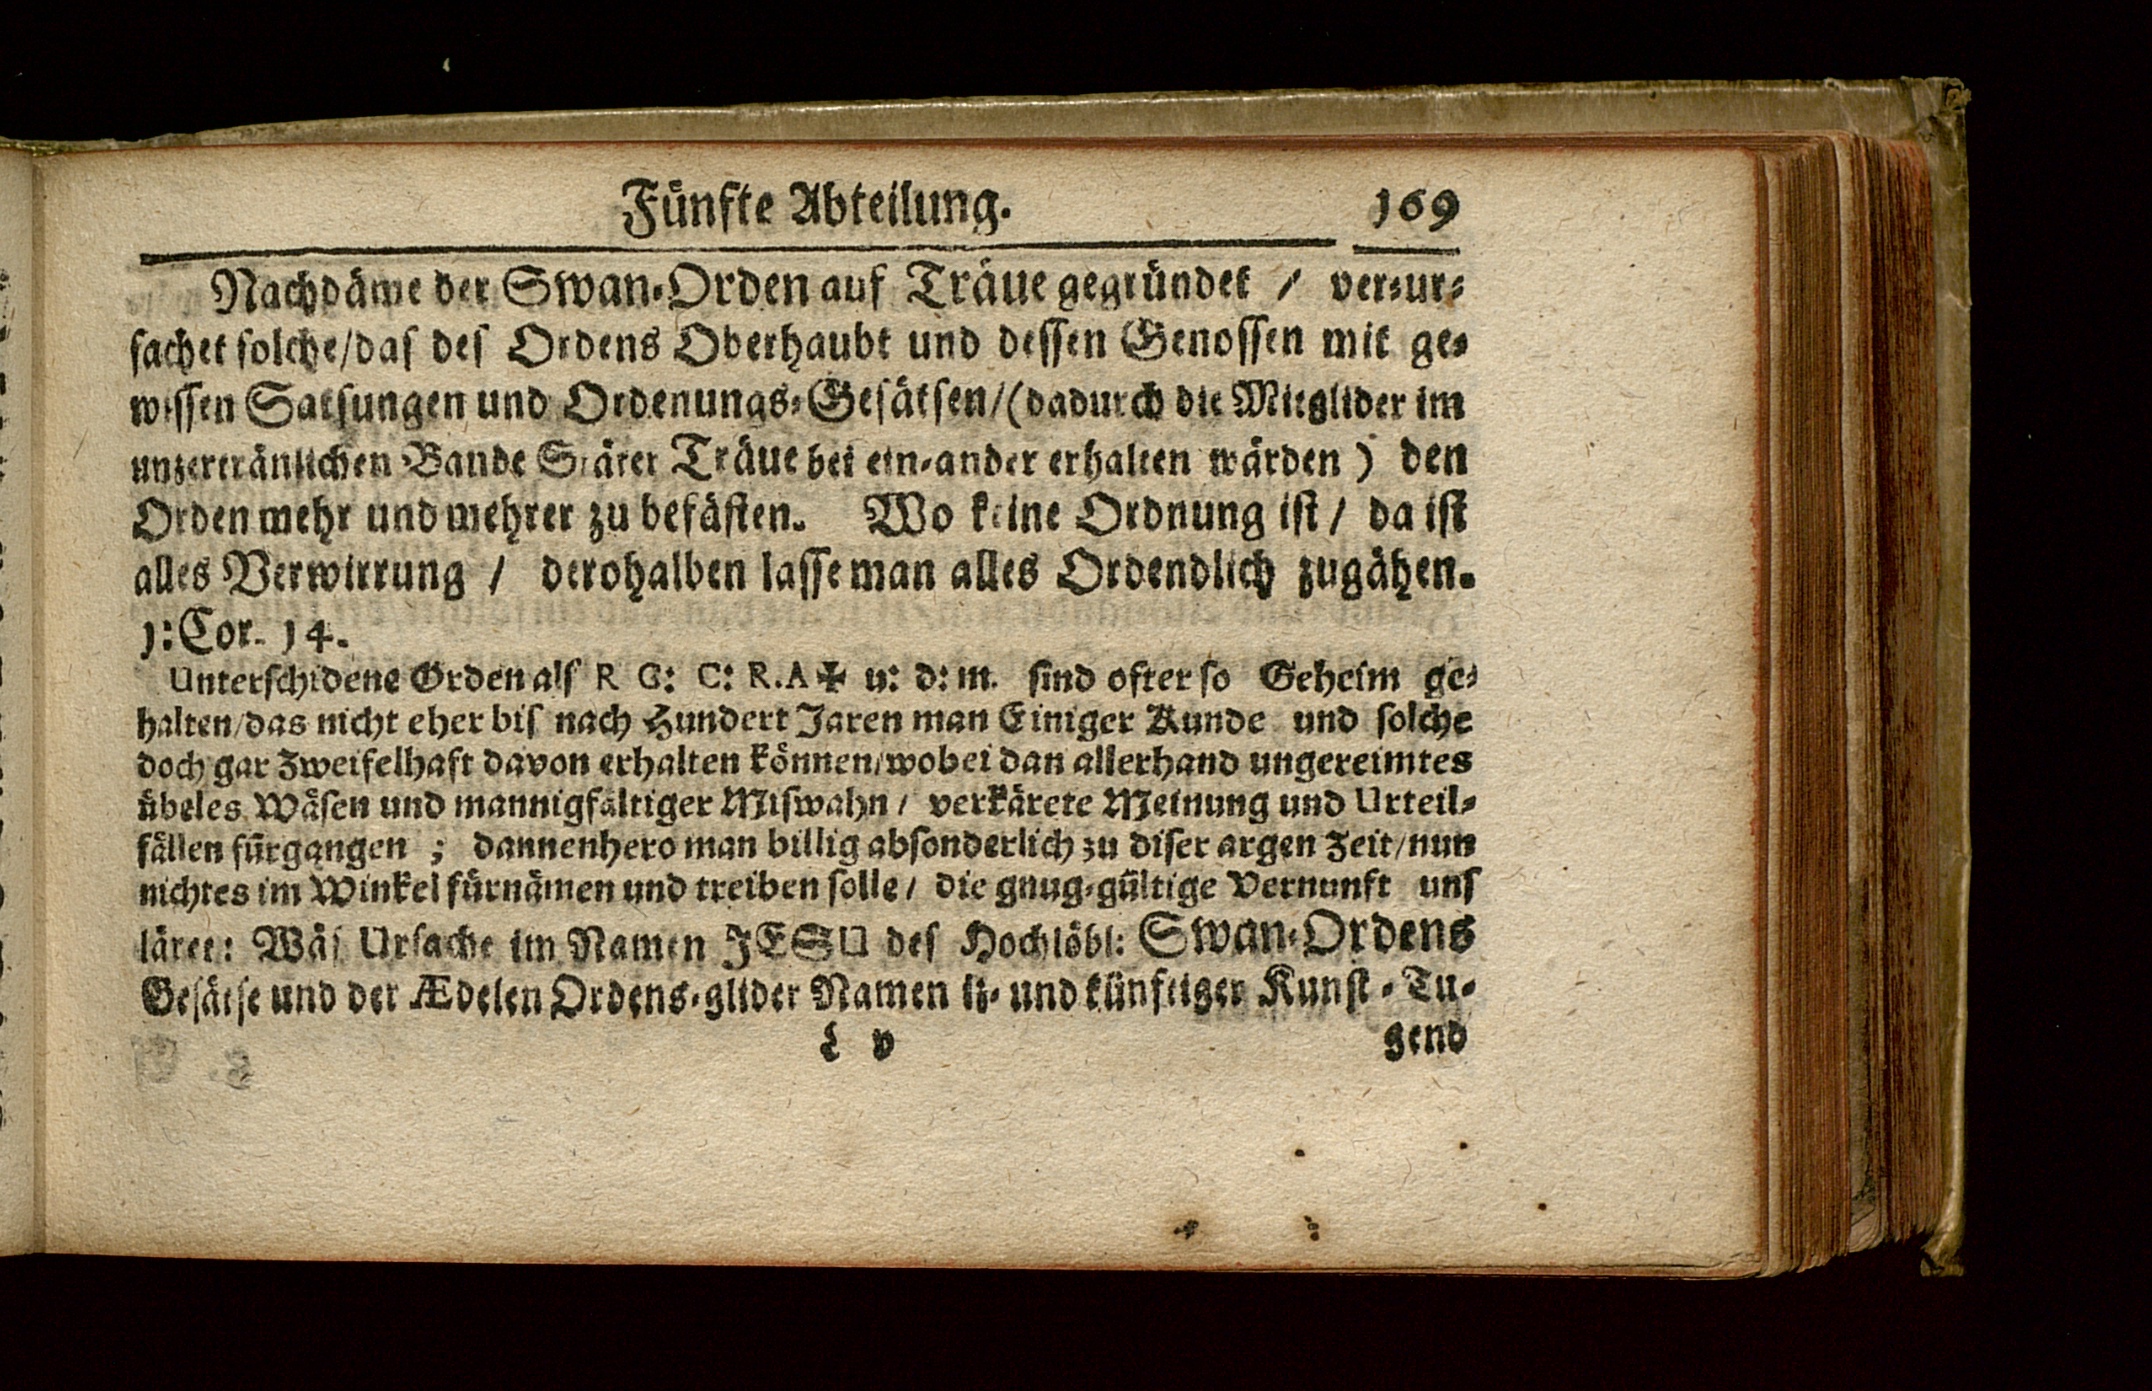 Fünfte Abteilung. 169
Nachdäme der Swan-Orden auf Träue gegründet / ver-ur-
sachet solche/das des Ordens Oberhaubt und dessen Genossen mit ge-
wissen Satsungen und Ordenungs-Gesätsen/(dadurch die Mitglider im
unzerträñlichen Bande Stäter Träue bei ein-ander erhalten wärden) den
Orden mehr und mehrer zu befästen. Wo keine Ordnung ist / da ist
alles Verwirrung / derohalben lasse man alles Ordendlich zugähen.
1: Cor. 14.
Unterschidene Orden als R G: C: R. A ✠ u: d: m. sind ofter so Geheim ge-
halten/das nicht eher bis nach Hundert Jaren man Einiger Kunde und solche
doch gar Zweifelhaft davon erhalten können/wobei dan allerhand ungereimtes
übeles Wäsen und mannigfältiger Miswahn / verkärete Meinung und Urteil-
fällen fürgangen ; dannenhero man billig absonderlich zu diser argen Zeit/nun
nichtes im Winkel fürnämen und treiben solle / die gnug-gültige Vernunft uns
läret: Wäs Ursache im Namen JESU des Hochlöbl: Swan-Ordens
Gesätse und der Ædelen Ordens-glider Namen it- und künftiger Kunst-Tu-
L v gend